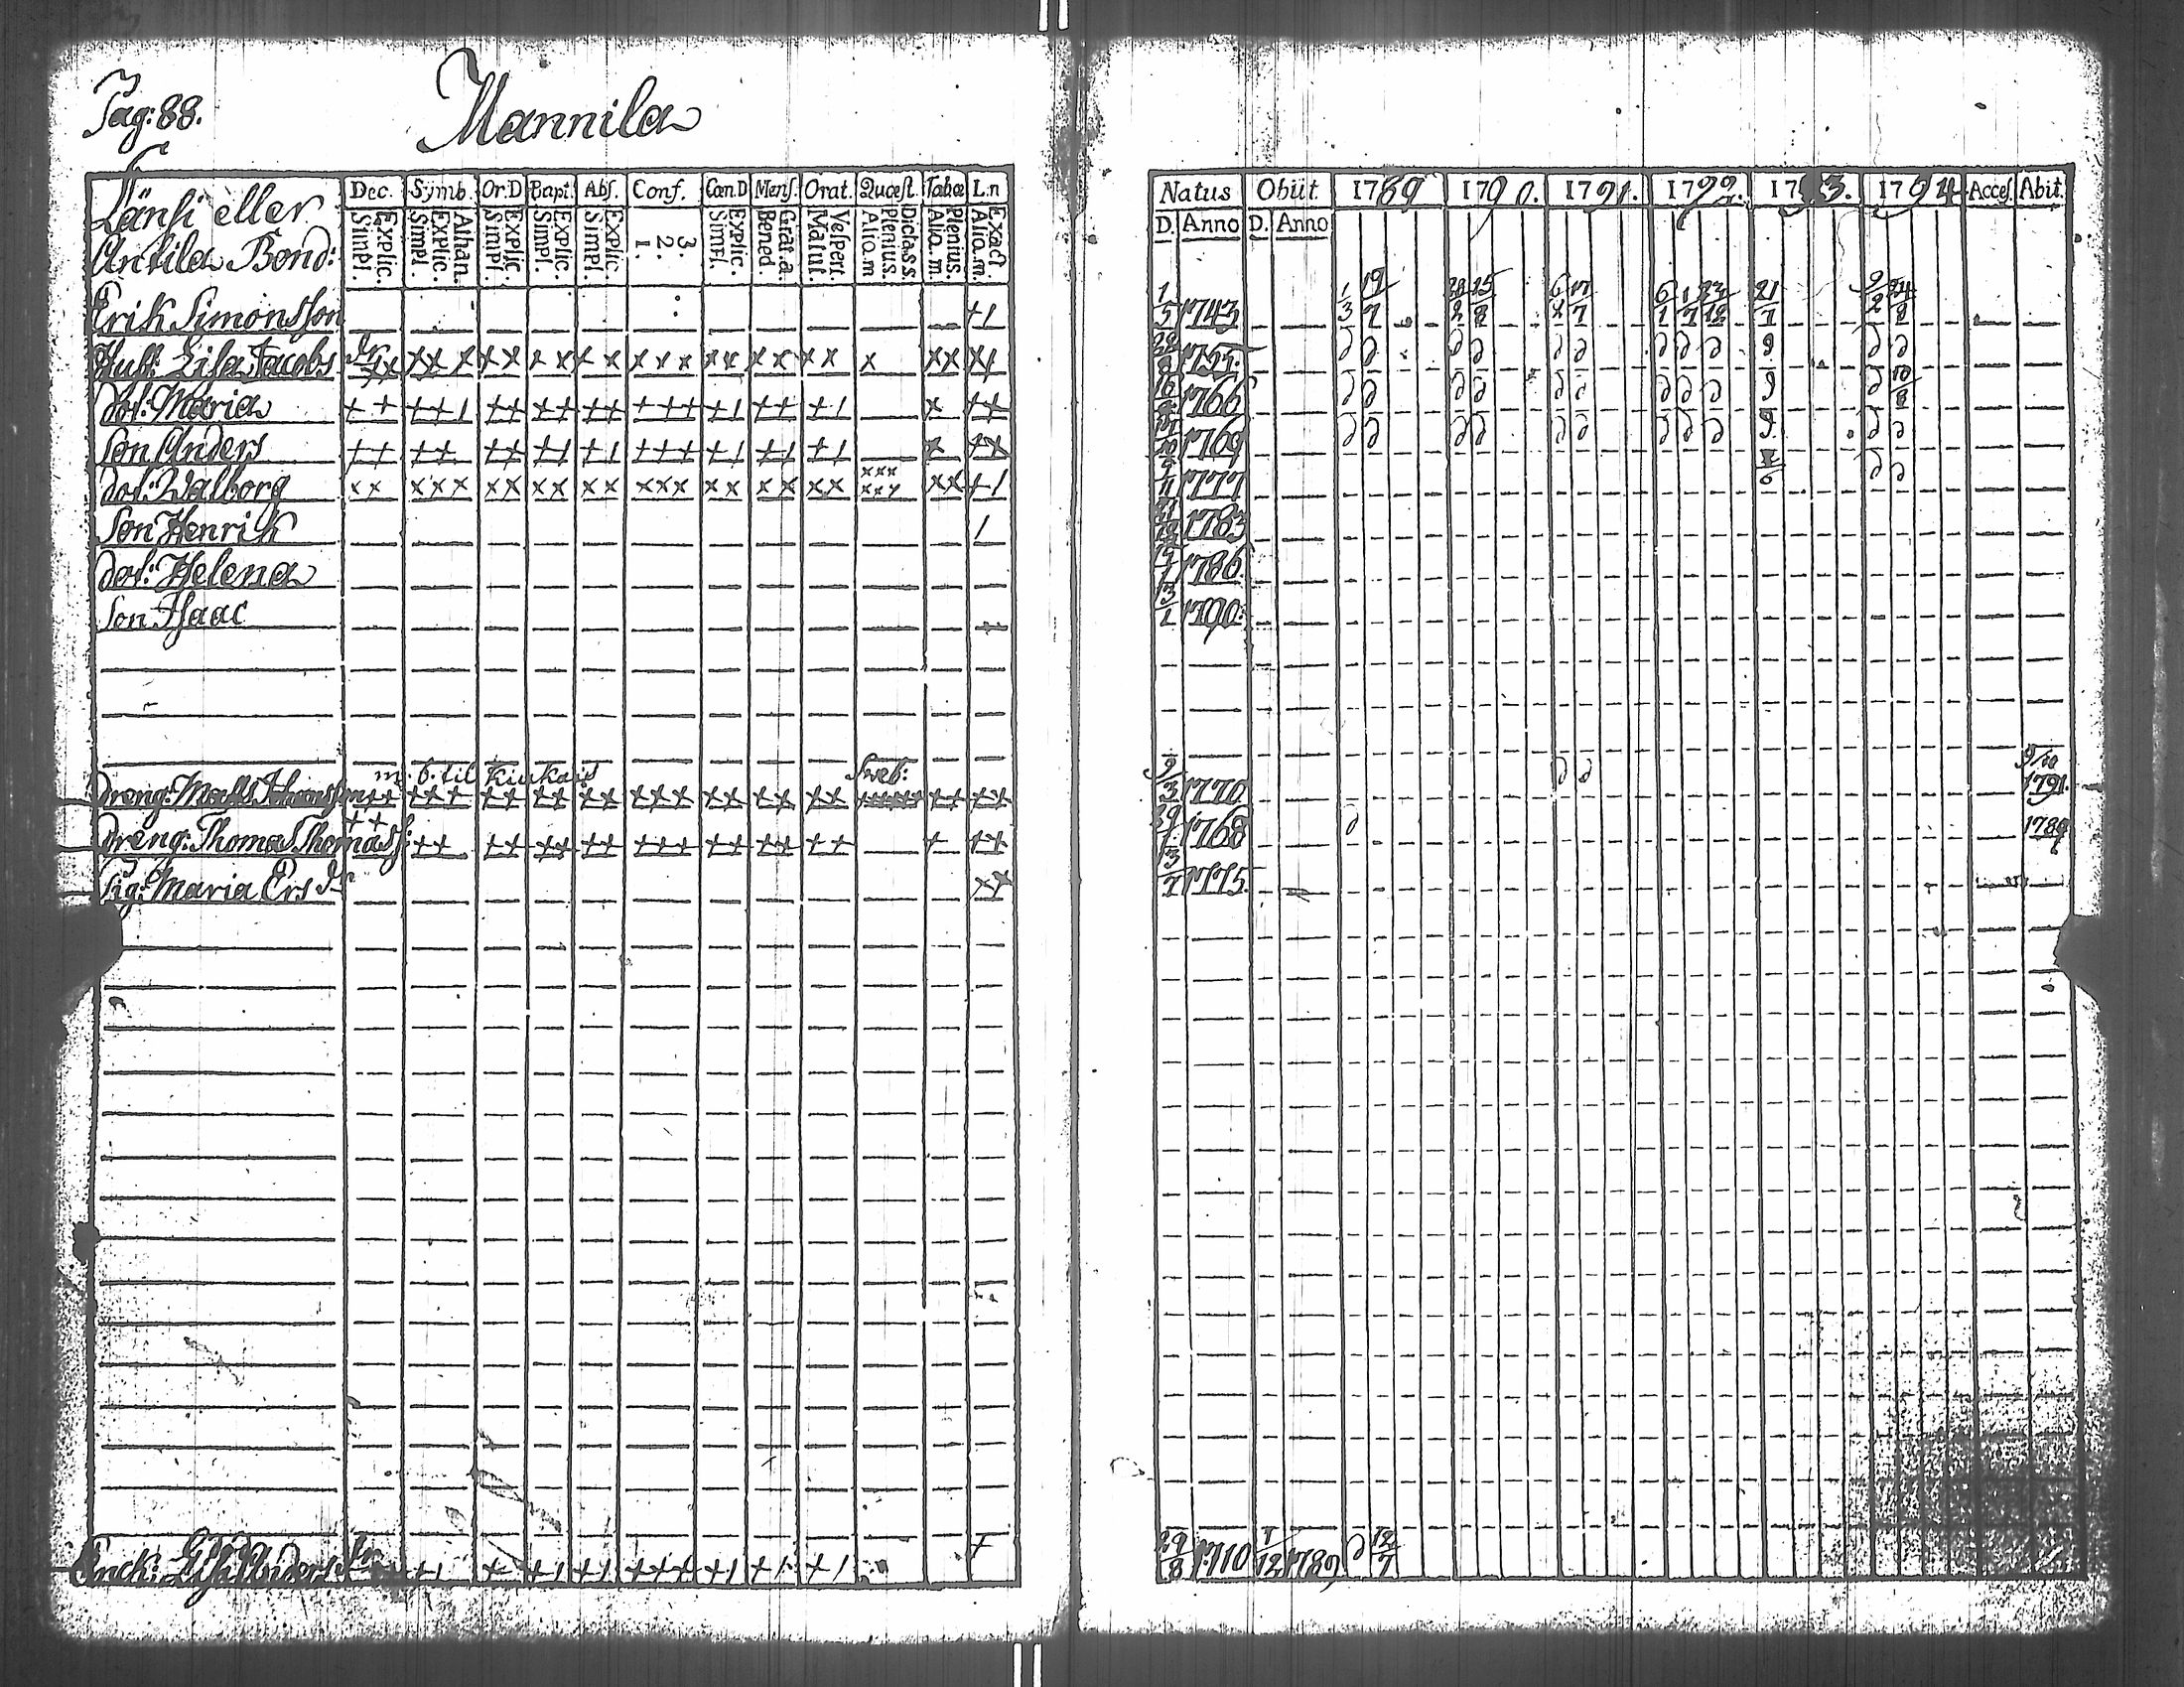 Pag: 88. Mannila
Länsi eller
Antila Bond:
Dec. Symb. Or:D Bapt. Abs. Conf. Cœn.D Mens. Orat. Quæst. Tabœ L:n
Explic. Simpl. Athan. Explic. Simpl. Explic. Simpl. Explic. Simpl. Explic. Simpl. 3. 2. 1. Explic. Simpl. Grat. a. Bened. Vespert. Matut. Dicta s.s. Plenius. Alio. m. Plenius. Alio. m. Exact. Alio. m.
Natus Obiit. 1789 1790. 1791. 1792. 1793. 1794 Acces. Abit.
D. Anno D. Anno
Erik Simonsson +1 1/5 1743 1/3 19/7 15/8 6/1 1/7 23/12 21/7 9/2 24/8
Hust: Lisa Jacobs dr xx xxx xx xx xx xxx xx xx xx x xx x1
dot: Maria ++ ++1 ++ ++ ++ +++ +1 ++ +1 x ++ 1766
Son Anders ++ ++ ++ +1 +1 +++ +1 +1 +1 x +x 1769
dot: Walborg xx xxx xx xx xx xxx xx xx xx xxx xxx xx +1 1777
Son Henrich 1 1783
dot: Helena 1786
Son Isaac 13/1 1790.
m. b. til Kiukais Sveb:
Dreng: Matts Johansson ++ +++ ++ ++ ++ +++ ++ ++ ++ ++ ++ 9/3 1770 9/10 1791.
Dreng: Thomas Thomass: ++ ++ ++ ++ ++ +++ ++ ++ ++ + ++ 1768 1789
Pig: Maria Ers dr xx 13/7 1775.
Enck: Lisa Anders dr +1 ++ +1 +1 +++ +1 +1 +1 + 29/8 1710 1/12 1789 12/7